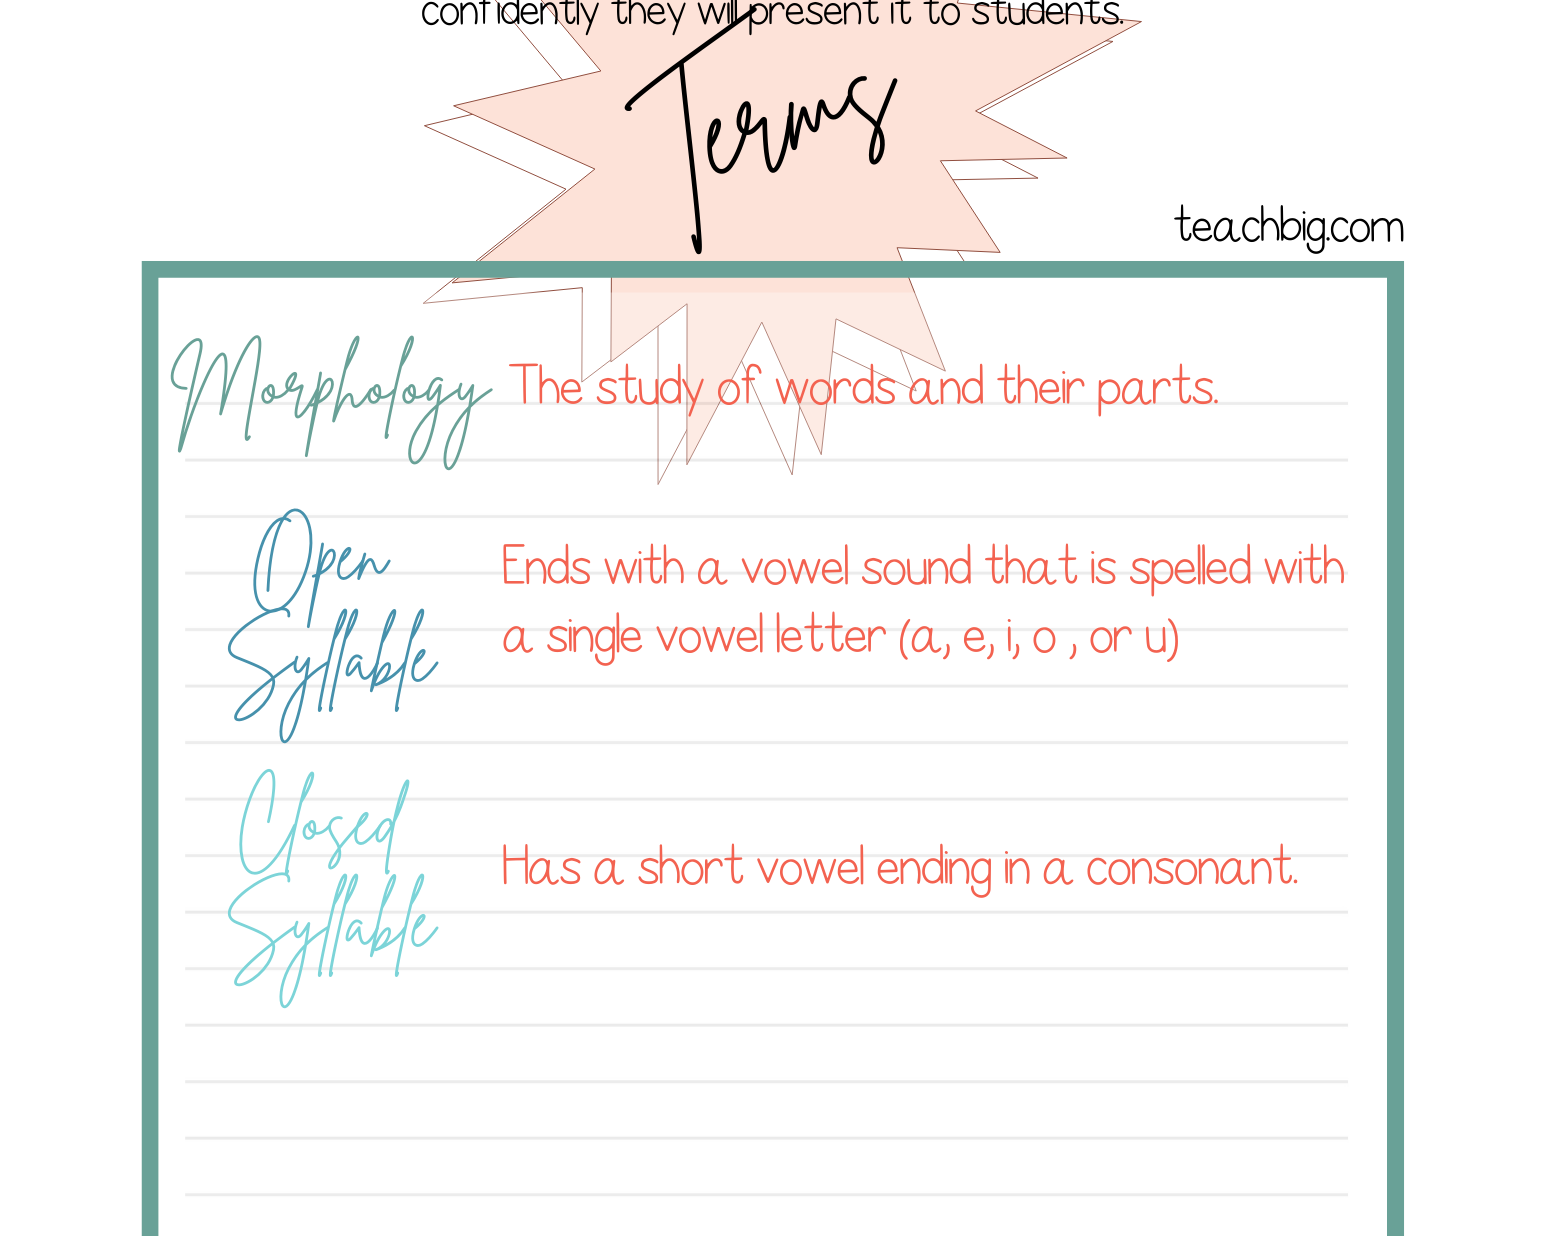 confidently they will present it to students.
Terms
teachbig.com
Morphology The study of words and their parts.
Open
Syllable
Ends with a vowel sound that is spelled with
a single vowel letter (a, e, i, o , or u)
Closed
Syllable
Has a short vowel ending in a consonant.